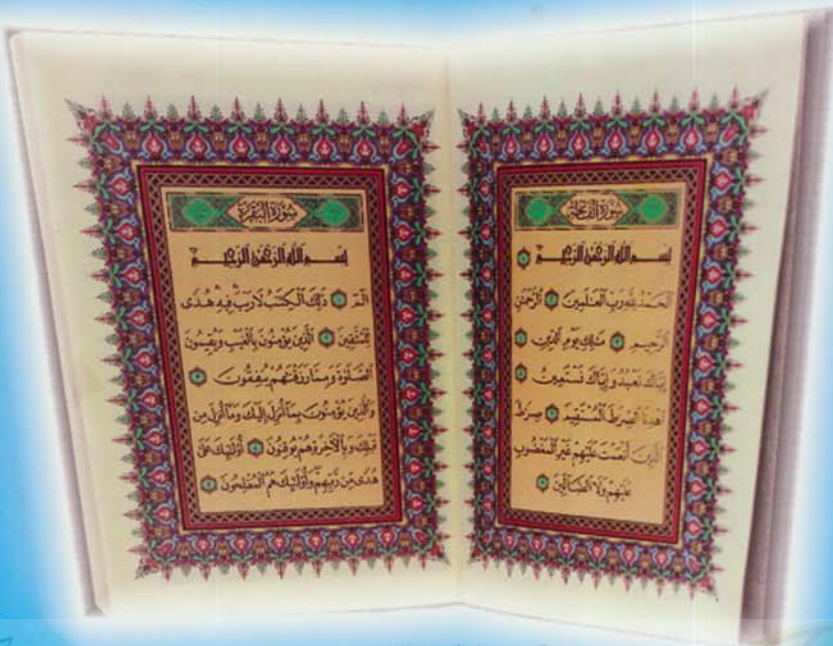 سُورَةُ الفَاتِحَةِ
بِسْمِ اللَّهِ الرَّحْمَٰنِ الرَّحِيمِ ١
الْحَمْدُ لِلَّهِ رَبِّ الْعَٰلَمِينَ ٢ الرَّحْمَٰنِ
الرَّحِيمِ ٣ مَٰلِكِ يَوْمِ الدِّينِ ٤
إِيَّاكَ نَعْبُدُ وَإِيَّاكَ نَسْتَعِينُ ٥
اهْدِنَا الصِّرَٰطَ الْمُسْتَقِيمَ ٦ صِرَٰطَ
الَّذِينَ أَنْعَمْتَ عَلَيْهِمْ غَيْرِ الْمَغْضُوبِ
عَلَيْهِمْ وَلَا الضَّآلِّينَ ٧
سُورَةُ البَقَرَةِ
بِسْمِ اللَّهِ الرَّحْمَٰنِ الرَّحِيمِ
الٓمٓ ١ ذَٰلِكَ الْكِتَٰبُ لَا رَيْبَ فِيهِ هُدًى
لِّلْمُتَّقِينَ ٢ الَّذِينَ يُؤْمِنُونَ بِالْغَيْبِ وَيُقِيمُونَ
الصَّلَوٰةَ وَمِمَّا رَزَقْنَٰهُمْ يُنفِقُونَ ٣
وَالَّذِينَ يُؤْمِنُونَ بِمَآ أُنزِلَ إِلَيْكَ وَمَآ أُنزِلَ مِن
قَبْلِكَ وَبِالْءَاخِرَةِ هُمْ يُوقِنُونَ ٤ أُو۟لَٰٓئِكَ عَلَىٰ
هُدًى مِّن رَّبِّهِمْ وَأُو۟لَٰٓئِكَ هُمُ الْمُفْلِحُونَ ٥